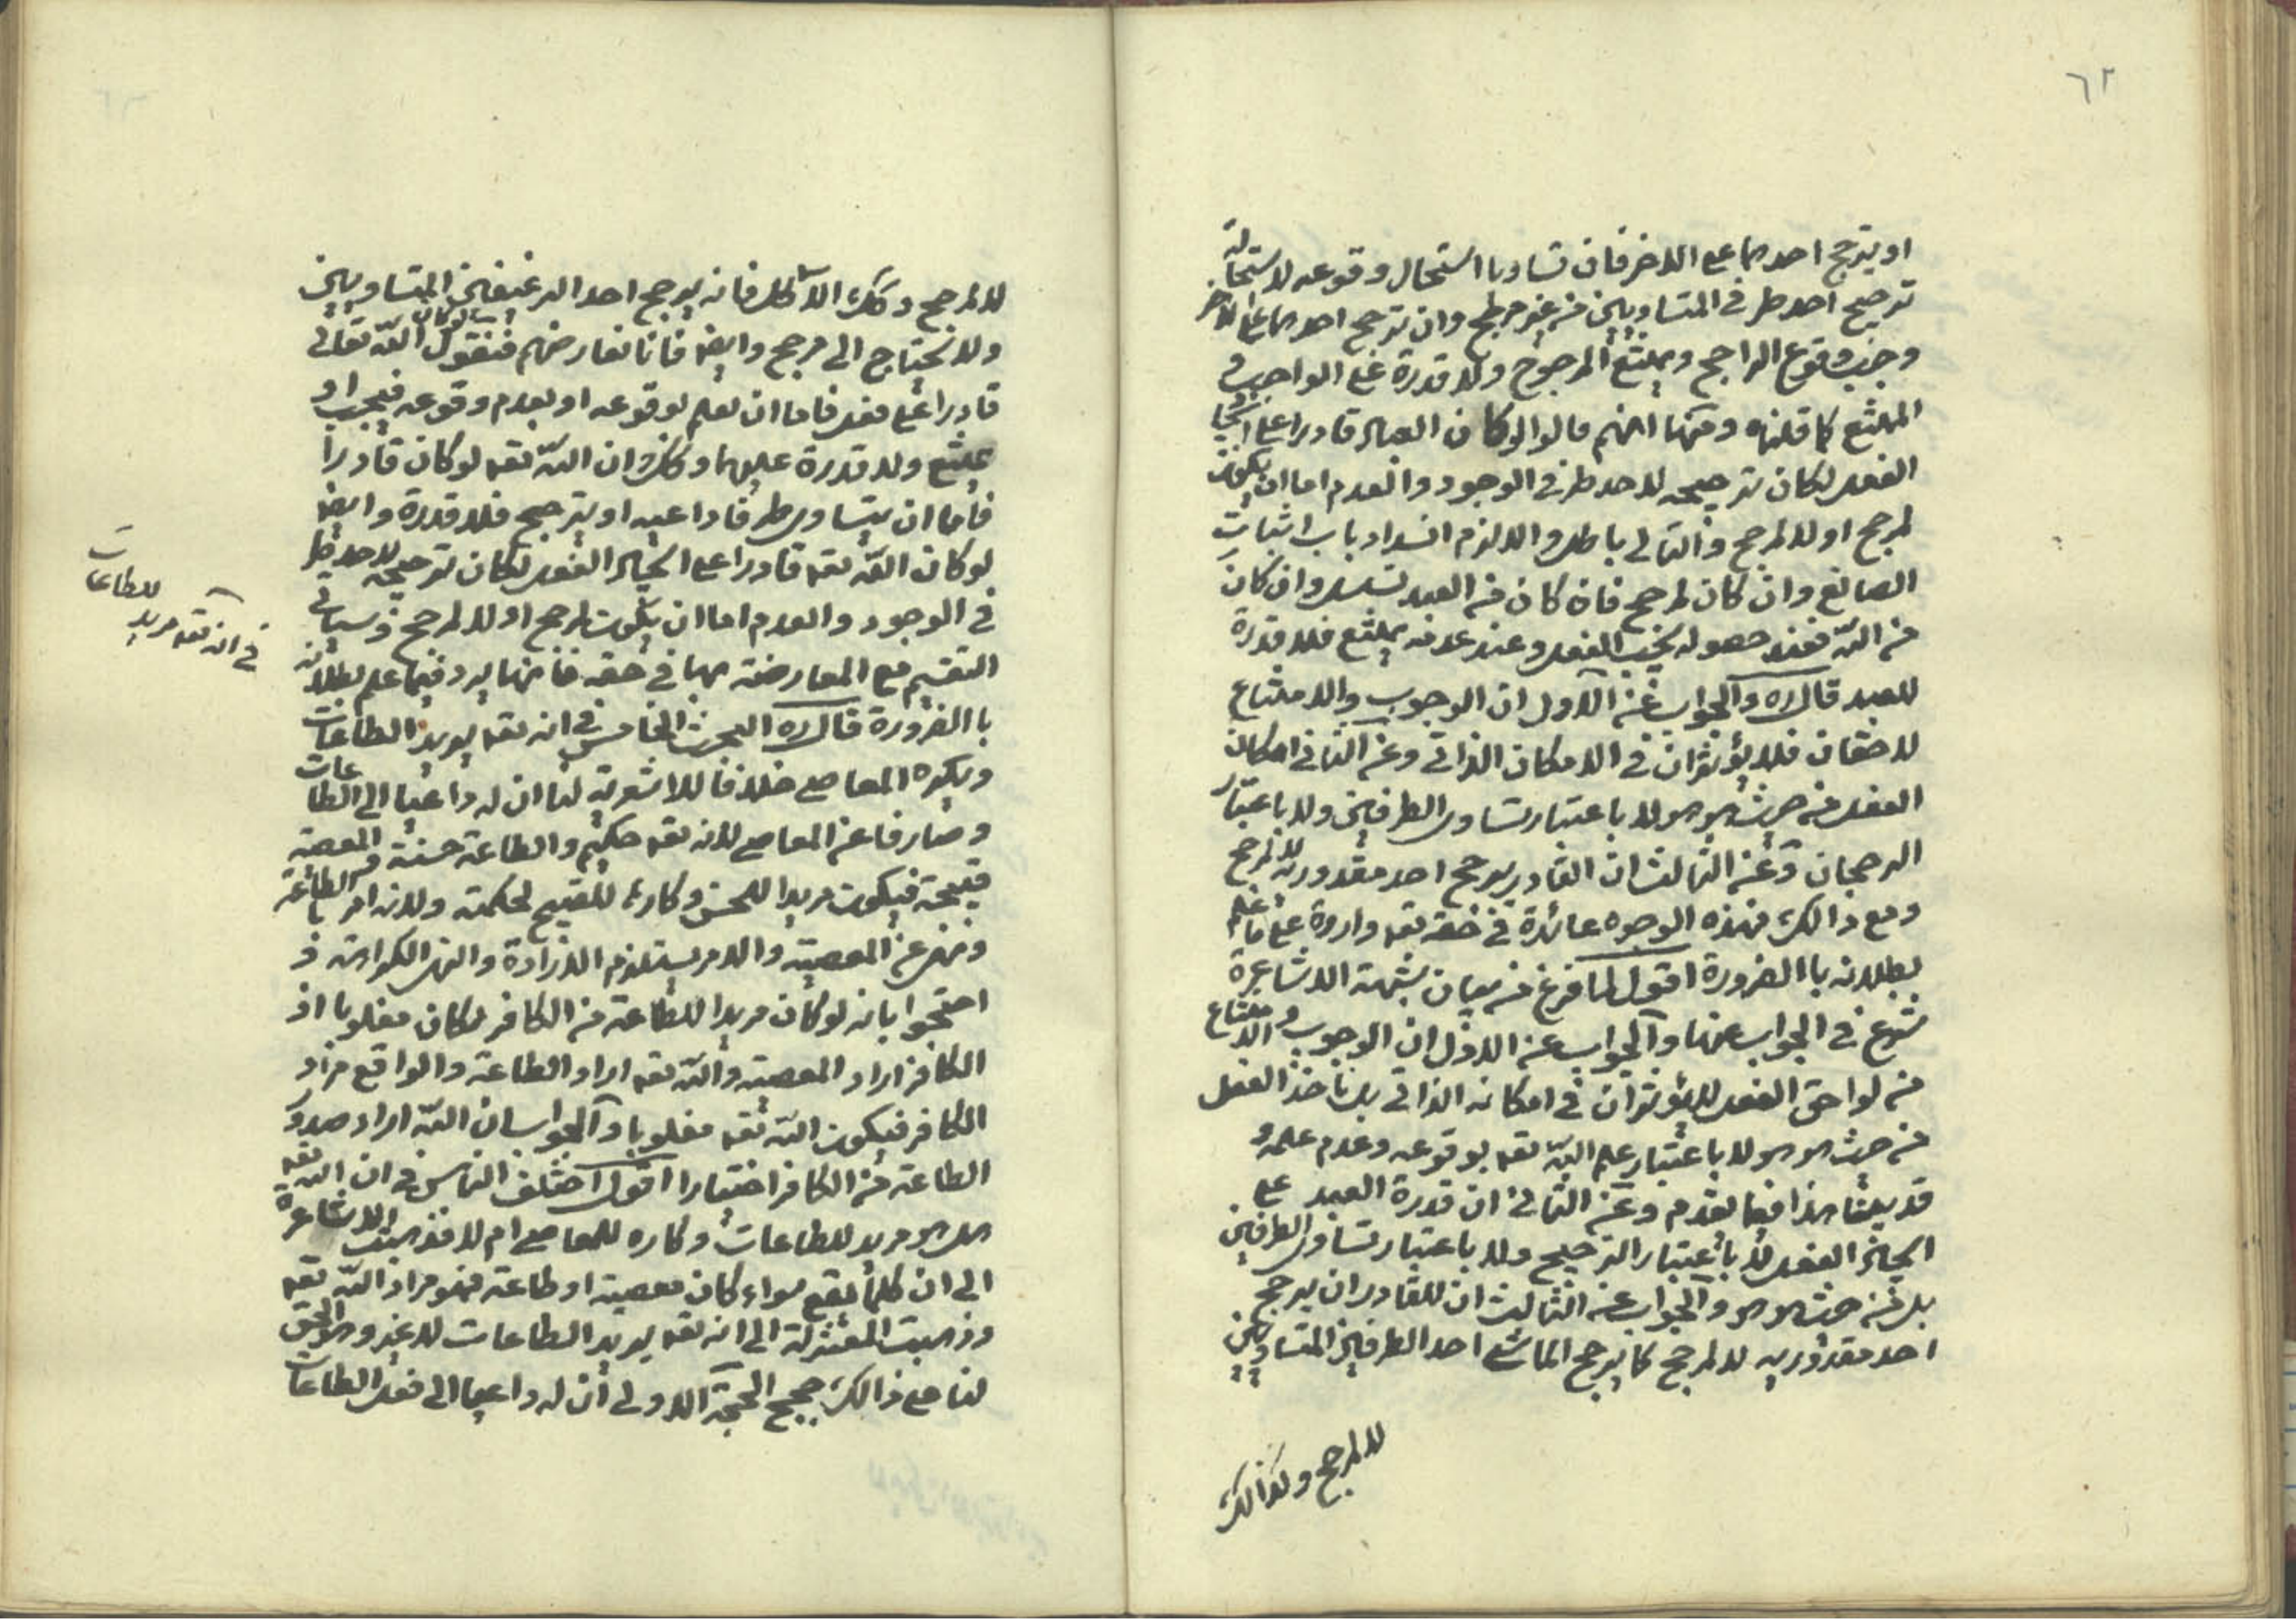 ٦٢
او يترجح احدهما على الاخر فان تساويا استحال وقوعه لاستحالة
ترجيح احد طرفى المتساويين من غير مرجح وان ترجح احدهما على الاخر
وجب وقوع الراجح ويمتنع المرجوح ولا قدرة على الواجب و
الممتنع كما قلناه ومنها انهم قالوا لو كان العبد قادرا على ايجاد
الفعل لكان ترجيحه لاحد طرفى الوجود والعدم اما ان يكون
لمرجح او لا لمرجح والتالى باطل والا لزم انسداد باب اثبات
الصانع وان كان لمرجح فان كان من العبد تسلسل وان كان
من الله فعند حصوله يجب الفعل وعند عدمه يمتنع فلا قدرة
للعبد قال ره والجواب عن الاول ان الوجوب والامتناع
لاحقان فلا يؤثران فى الامكان الذاتى وعن الثانى امكان
الفعل من حيث هو هو لا باعتبار تساوى الطرفين ولا باعتبار
الرجحان وعن الثالث ان القادر يرجح احد مقدوريه لا لمرجح
ومع ذالك فهذه الوجوه عائدة فى حقه تعه واردة على ما علم
بطلانه باالضرورة اقول لما فرغ من بيان شبهة الاشاعرة
شرع فى الجواب عنها والجواب عن الاول ان الوجوب والامتناع
من لواحق الفعل لا يؤثران فى امكانه الذاتى بل ناخذ الفعل
من حيث هو هو لا باعتبار علم الله تعه بوقوعه وعدم علمه و
قد بينا هذا فيما تقدم وعن الثانى ان قدرة العبد على
ايجاد الفعل لا باعتبار الترجيح ولا باعتبار تساوى الطرفين
بل من حيث هو هو والجواب عن الثالث ان للقادر ان يرجح
احد مقدوريه لا لمرجح كما يرجح الماشى احد الطرفين المتساويين
لا لمرجح وكذالك
لا لمرجح وكذلك الاكل فانه يرجح احد الرغيفين المتساويين
ولا يحتاج الى مرجح وايضا فانا نعارضهم فنقول لو كان الله تعالى
قادرا على فعل فاما ان يعلم بوقوعه او بعدم وقوعه فيجب او
يمتنع ولا قدرة عليهما وكذلك ان الله تعه لو كان قادرا
فاما ان يتساوى طرفا داعيه او يترجح فلا قدرة وايضا
لو كان الله تعه قادرا على ايجاد الفعل لكان ترجيحه لاحد طر
فى الوجود والعدم اما ان يكون لمرجح او لا لمرجح وسياتى
التقسيم مع المعارضة بها فى حقه فانها يرد فيما علم بطلانه
باالضرورة قال ره البحث الخامس فى انه تعه يريد الطاعات
ويكره المعاصى خلافا للاشعرية لنا ان له داعيا الى الطاعات
وصارفا عن المعاصى لانه تعه حكيم والطاعة حسنة والمعصية
قبيحة فيكون مريدا للحسن وكارها للقبيح لحكمته ولانه امر بالطاعة
ونهى عن المعصية والامر يستلزم الارادة والنهى الكراهة و
احتجوا بانه لو كان مريدا للطاعة من الكافر لكان مغلوبا اذ
الكافر اراد المعصية والله تعه اراد الطاعة والواقع مراد
الكافر فيكون الله تعه مغلوبا والجواب ان الله اراد صدور
الطاعة من الكافر اختيارا اقول اختلف الناس فى ان الله تعه
هل هو مريد للطاعات وكاره للمعاصى ام لا فذهبت الاشاعرة
الى ان كلما يقع سواء كان معصية او طاعة فهو مراد الله تعه
وذهبت المعتزلة الى انه تعه يريد الطاعات لا غير وهو الحق
لنا على ذالك حجج الحجة الاولى ان له داعيا الى فعل الطاعات
فى انه تعه مريد للطاعات